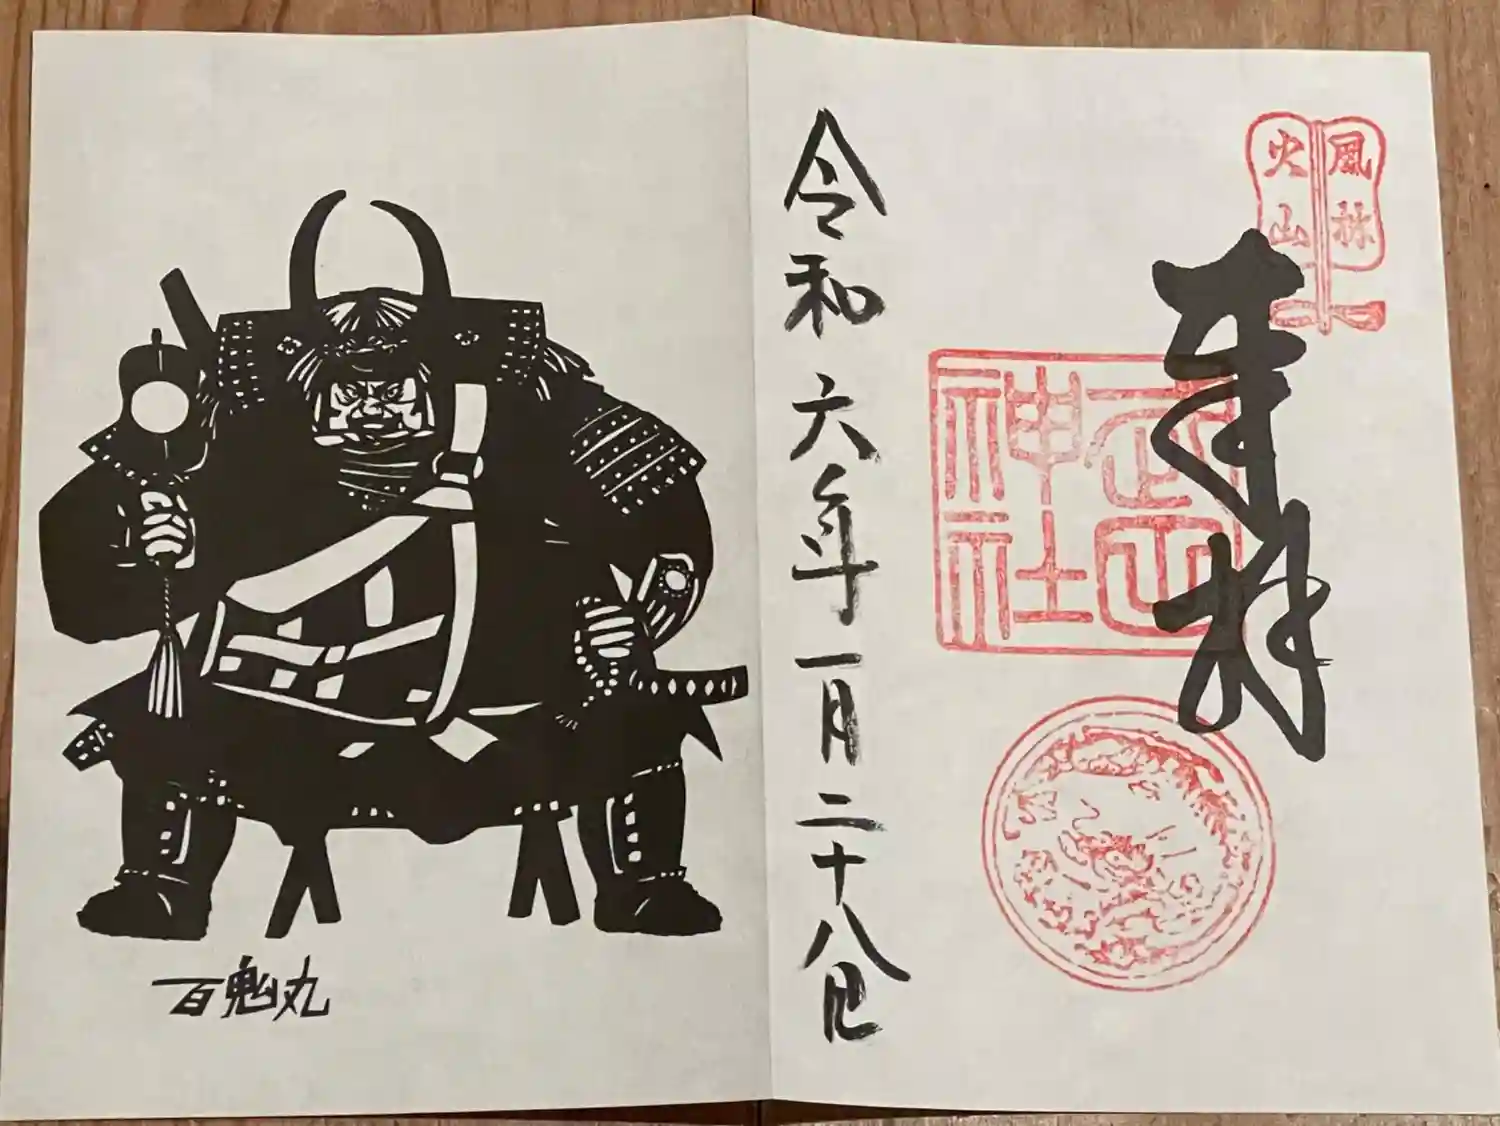 風林
火山
奉拝
武田
神社
令和六年一月二十八日
百鬼丸